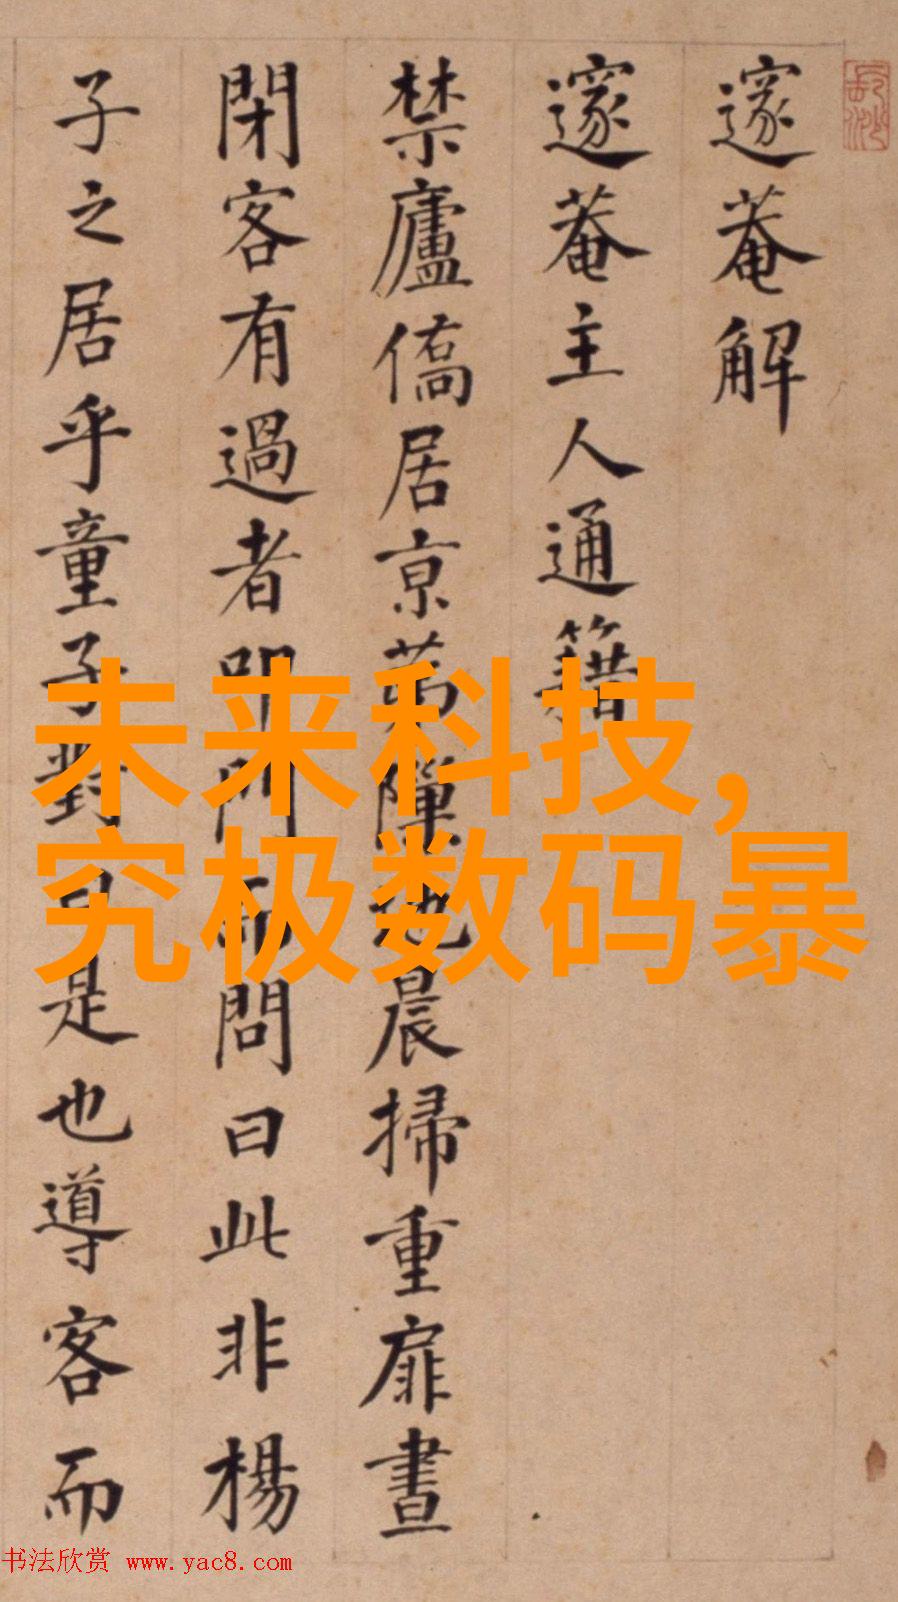 邃菴解
邃菴主人通籍
禁廬僑居京苐隟地晨掃重扉晝
閉客有過者叩門而問曰此非楊
子之居乎童子對曰是也導客而
未来科技，
究极数码暴
书法欣赏 www.yac8.com